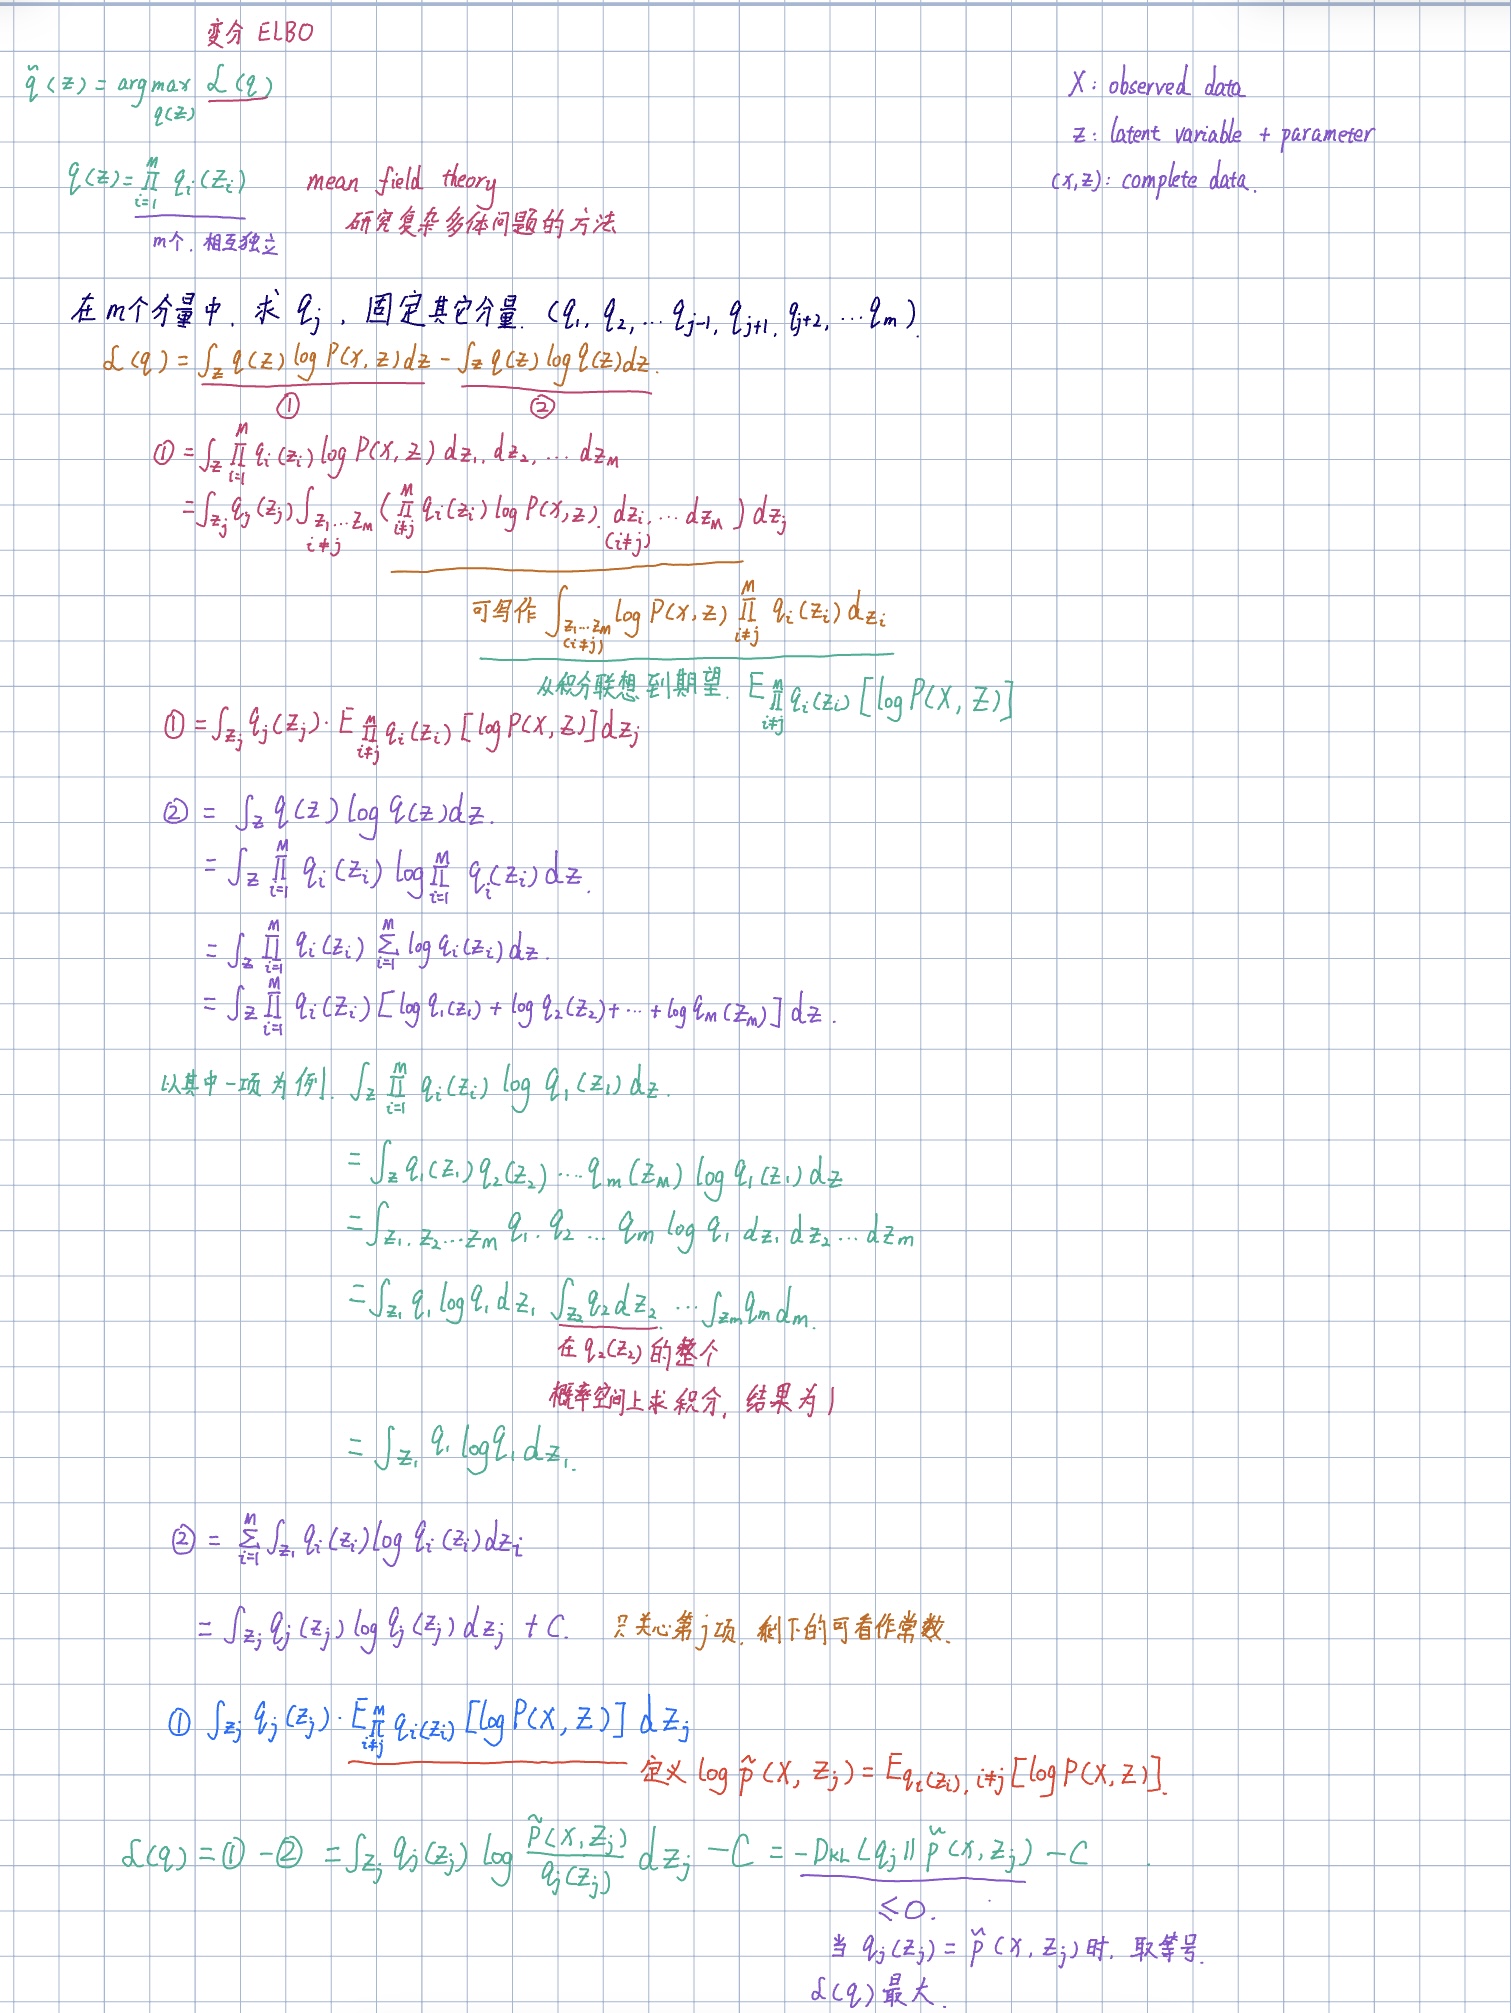 变分 ELBO
q̃(z) = argmax_{q(z)} ℒ(q)
X: observed data
z: latent variable + parameter
(x,z): complete data.
q(z) = ∏_{i=1}^{M} q_i(z_i)   mean field theory
研究复杂多体问题的方法
m个. 相互独立
在m个分量中. 求 q_j, 固定其它分量. (q_1, q_2, … q_{j-1}, q_{j+1}, q_{j+2}, … q_m).
ℒ(q) = ∫_z q(z) log P(x,z) dz − ∫_z q(z) log q(z) dz.
① ②
① = ∫_z ∏_{i=1}^{M} q_i(z_i) log P(x,z) dz_1, dz_2, … dz_M
= ∫_{z_j} q_j(z_j) ∫_{z_1…z_M, i≠j} (∏_{i≠j}^{M} q_i(z_i) log P(x,z). dz_i, … dz_M (i≠j)) dz_j
可写作 ∫_{z_1…z_M (i≠j)} log P(x,z) ∏_{i≠j}^{M} q_i(z_i) dz_i
从积分联想到期望. E_{∏_{i≠j}^{M} q_i(z_i)} [log P(X, Z)]
① = ∫_{z_j} q_j(z_j) · E_{∏_{i≠j}^{M} q_i(z_i)} [log P(X,Z)] dz_j
② = ∫_z q(z) log q(z) dz.
= ∫_z ∏_{i=1}^{M} q_i(z_i) log ∏_{i=1}^{M} q_i(z_i) dz.
= ∫_z ∏_{i=1}^{M} q_i(z_i) ∑_{i=1}^{M} log q_i(z_i) dz.
= ∫_z ∏_{i=1}^{M} q_i(z_i) [log q_1(z_1) + log q_2(z_2) + … + log q_M(z_M)] dz.
以其中一项为例. ∫_z ∏_{i=1}^{M} q_i(z_i) log q_1(z_1) dz.
= ∫_z q_1(z_1) q_2(z_2) … q_m(z_M) log q_1(z_1) dz
= ∫_{z_1, z_2 … z_m} q_1 · q_2 … q_m log q_1 dz_1 dz_2 … dz_m
= ∫_{z_1} q_1 log q_1 dz_1 ∫_{z_2} q_2 dz_2 … ∫_{z_m} q_m d_m.
在 q_2(z_2) 的整个
概率空间上求积分, 结果为1
= ∫_{z_1} q_1 log q_1 dz_1.
② = ∑_{i=1}^{M} ∫_{z_1} q_i(z_i) log q_i(z_i) dz_i
= ∫_{z_j} q_j(z_j) log q_j(z_j) dz_j + C.   只关心第j项, 剩下的可看作常数.
① ∫_{z_j} q_j(z_j) · E_{∏_{i≠j}^{M} q_i(z_i)} [log P(X, Z)] dz_j
定义 log p̃(X, z_j) = E_{q_i(z_i), i≠j} [log P(X,Z)].
ℒ(q) = ① − ② = ∫_{z_j} q_j(z_j) log \frac{p̃(X,z_j)}{q_j(z_j)} dz_j − C = −D_{KL}(q_j || p̃(x,z_j)) − C
≤ 0.
当 q_j(z_j) = p̃(x, z_j) 时, 取等号.
ℒ(q) 最大.